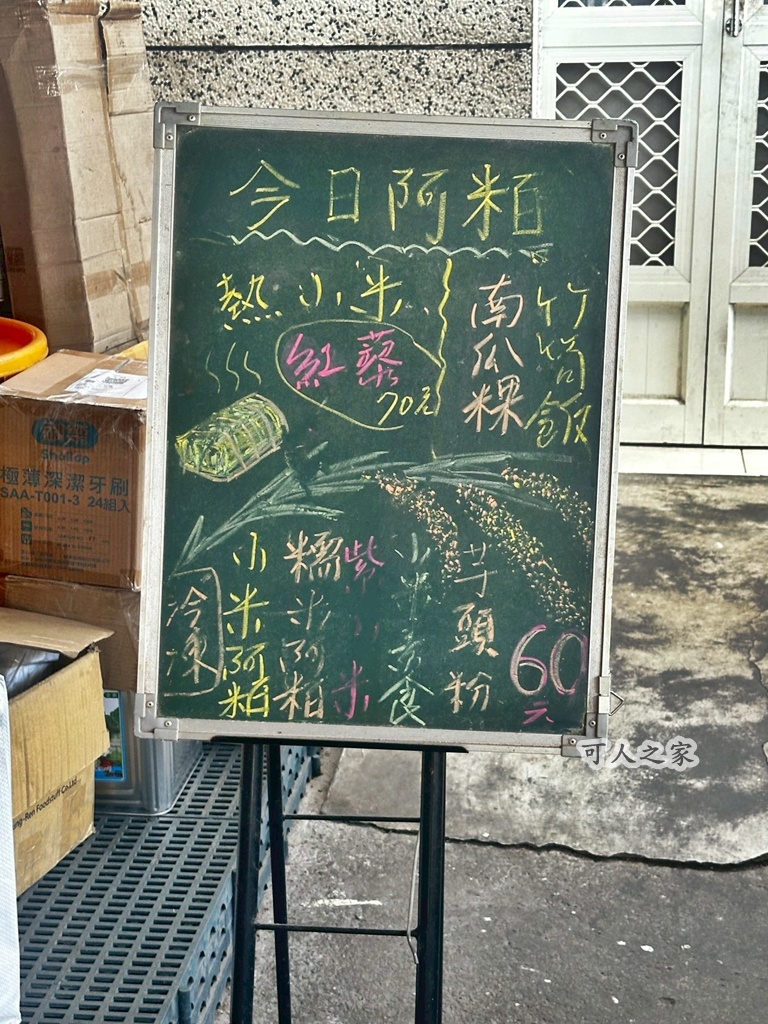 今日阿粨
熱小米
紅藜
70元
南瓜粿
竹筒飯
冷凍
小米阿粨
糯米阿粨
紫小米
小米素食
芋頭粉
60元
Shallop
極薄深潔牙刷
SAA-T001-3 24組入
Foodstuff Co.Ltd
可人之家